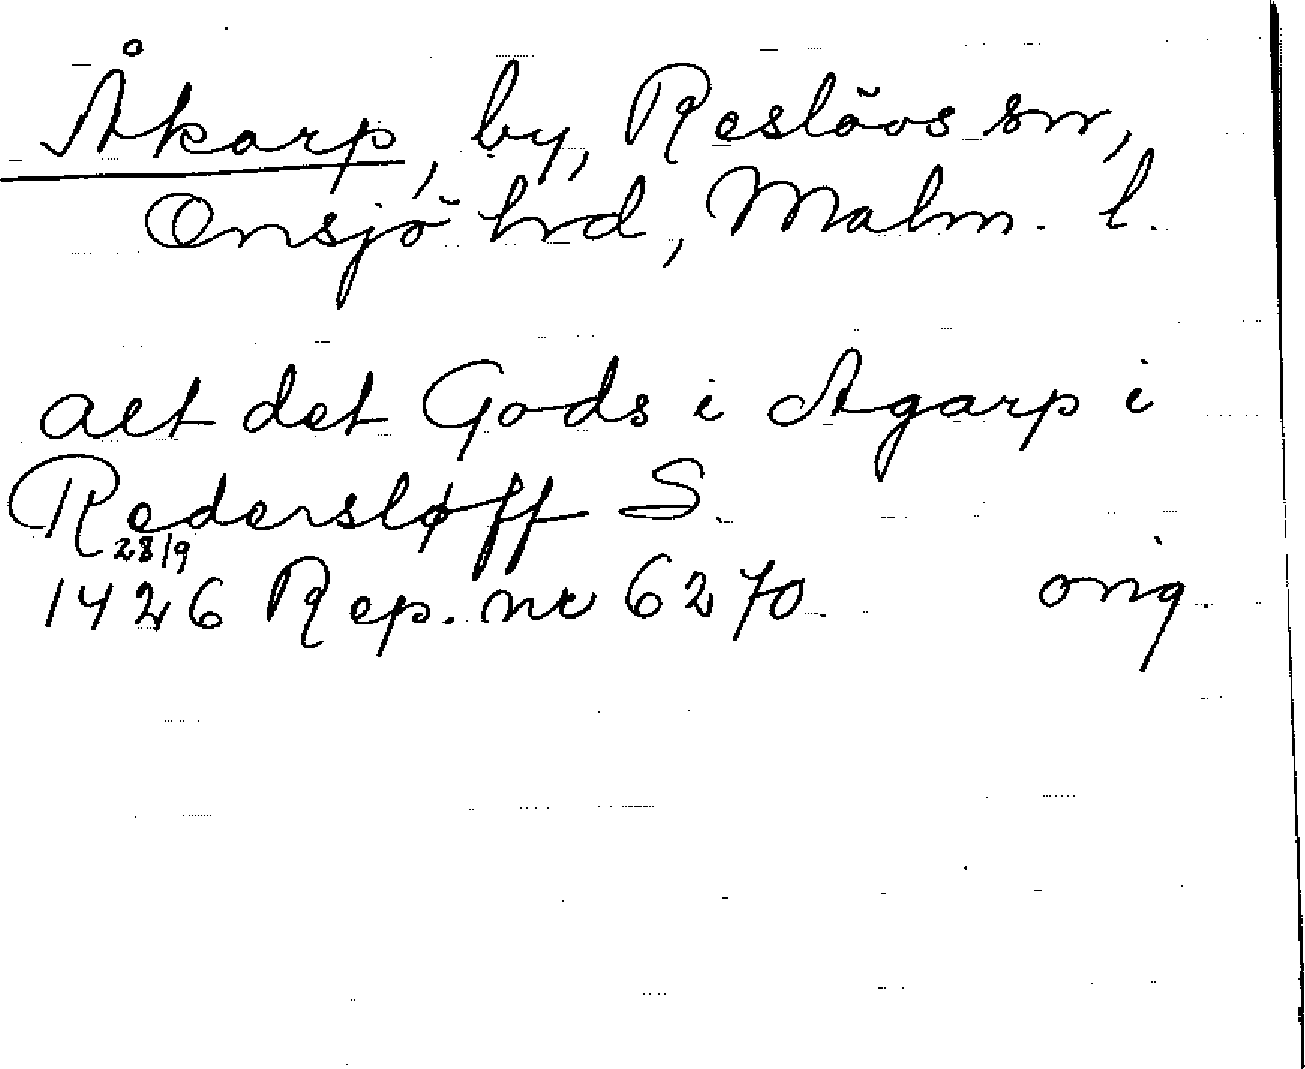 Åkarp, by, Reslövs sn,
Onsjö hrd, Malm. l.
alt det Gods i Agarp i
Redersløff S.
28/9
1426 Rep. nr 6270 orig.